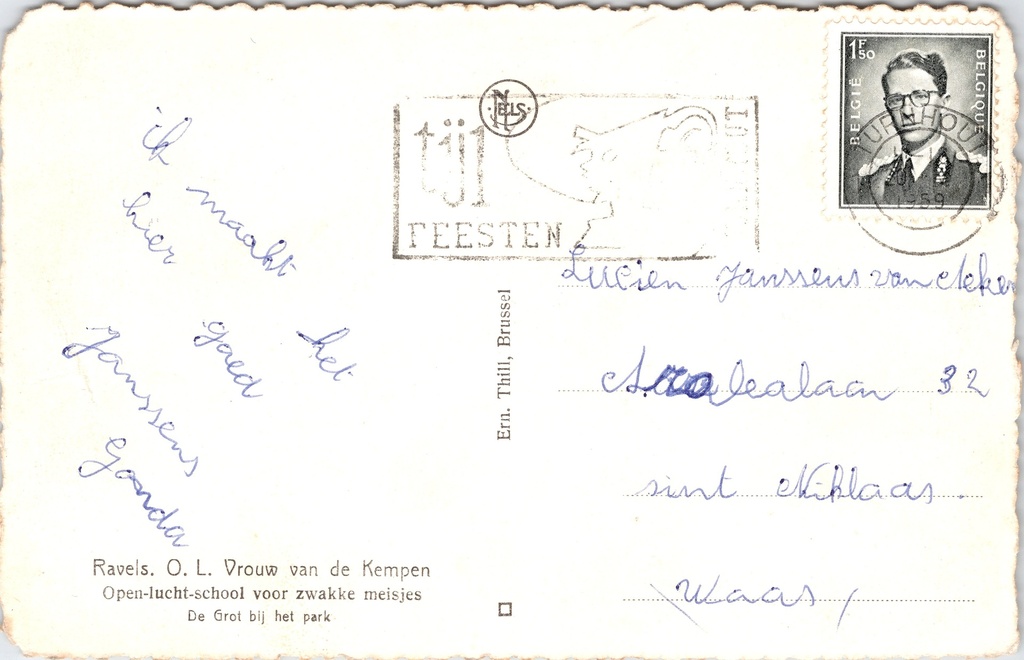 ik
maakt
hier
het
goed
Janssens
Gonda
Ravels. O. L. Vrouw van de Kempen
Open-lucht-school voor zwakke meisjes
De Grot bij het park
Ern. Thill, Brussel
NELS
tijl
FEESTEN
1F50
BELGIË
BELGIQUE
TURNHOUT
1959
Lucien Janssens van
32
sint Niklaas.
Waas,